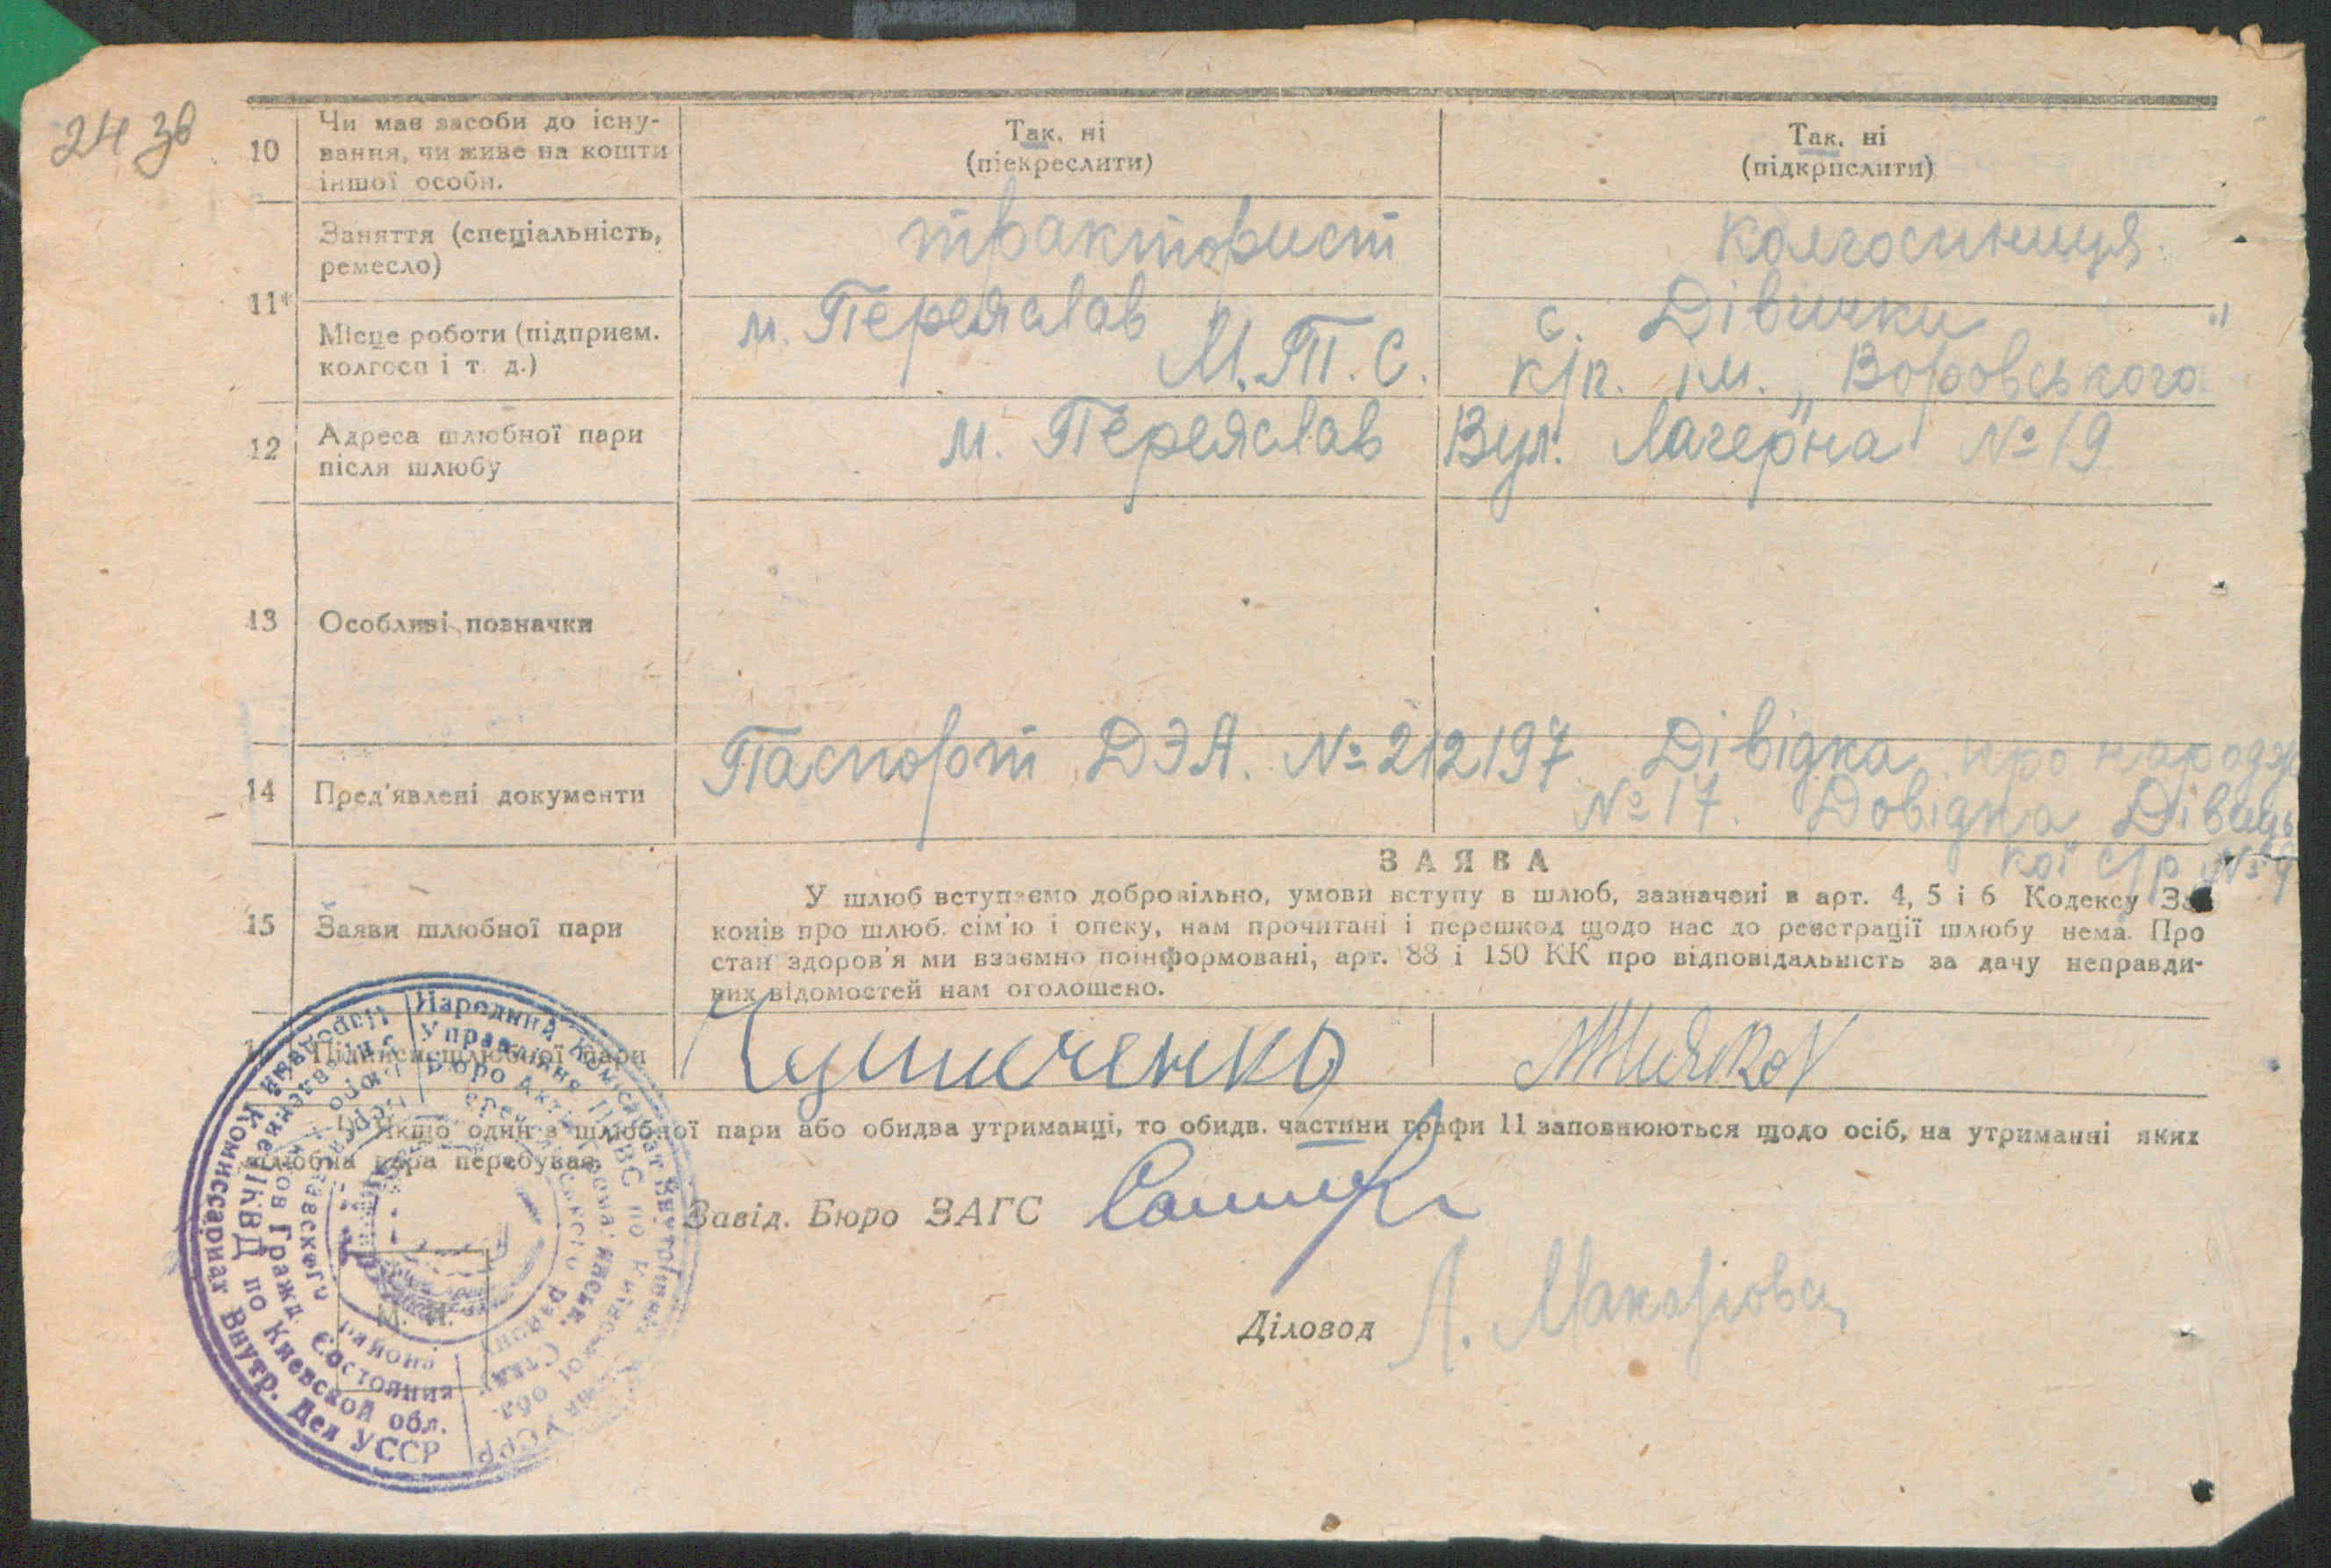 24 зв
10 Чи має засоби до існу- Так, ні Так, ні
вання, чи живе на кошти (піекреслити) (підкрпслити)
іншої особи.
11¹ Заняття (спеціальність, тракторист колгоспниця.
ремесло)
Місце роботи (підприєм. м. Переяслав с. Дівички
колгосп і т. д.) М.Т.С. к/г. ім. „Воровського"
12 Адреса шлюбної пари м. Переяслав Вул. Лагерна № 19
після шлюбу
13 Особливі позначки
14 Пред'явлені документи Паспорт ДЭА. № 212197 Дівідка про народж
№ 17. Довідка Дівиць
кої с/р №
ЗАЯВА
15 Заяви шлюбної пари
У шлюб вступаємо добровільно, умови вступу в шлюб, зазначені в арт. 4, 5 і 6 Кодексу За
конів про шлюб, сім'ю і опеку, нам прочитані і перешкод щодо нас до реєстрації шлюбу нема. Про
стан здоров'я ми взаємно поінформовані, арт. 88 і 150 КК про відповідальність за дачу неправди-
вих відомостей нам оголошено.
Підписи шлюбної пари
¹) Якщо один з шлюбної пари або обидва утриманці, то обидв. частини графи 11 заповнюються щодо осіб, на утриманні яких
шлюбна пара перебуває.
Завід. Бюро ЗАГС
Діловод Л. Макарова
М. П.
Народний Комісаріат Внутрішніх Справ УСРР
Управління НКВС по Київській обл.
Бюро Актів Громадянськ. Стану
Народный Комиссариат Внутр. Дел УССР
Управление НКВД по Киевской обл.
Бюро Актов Гражд. Состояния
района